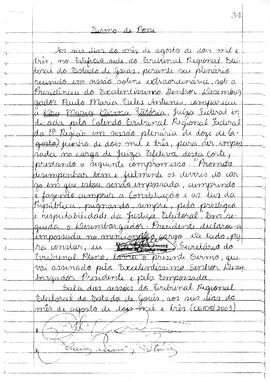 34
Termo de Posse
Aos seis dias do mês de agosto de dois mil e
três, no Edifício sede do Tribunal Regional Elei-
toral do Estado de Goiás, perante seu plenário
reunido em sessão solene extraordinária, sob a
Presidência do Excelentíssimo Senhor Desembar-
gador Paulo Maria Teles Antunes, compareceu
a Maria Vitória, Juíza Federal in-
dicada pelo Colendo Tribunal Regional Federal
da 1ª Região em sessão plenária de doze de (a-
gosto) junho de dois mil e três, para ser impos-
sada no cargo de Juíza Efetiva desta Corte,
prestando o seguinte compromisso: "Prometo
desempenhar bem e fielmente os deveres do car-
go em que estou sendo empossada, cumprindo
e fazendo cumprir a Constituição e as leis da
República, pugnando, sempre, pelo prestígio
e respeitabilidade da Justiça Eleitoral". Em se-
guida, o Desembargador-Presidente declarou-a
empossada no mencionado cargo. De tudo, pa-
ra constar, eu Secretário do
Tribunal Pleno, lavrei o presente termo, que
vai assinado pelo Excelentíssimo Senhor Desem-
bargador Presidente e pela Empossada.
Sala das sessões do Tribunal Regional
Eleitoral do Estado de Goiás, aos seis dias do
mês de agosto de dois mil e três (06/08/2003)